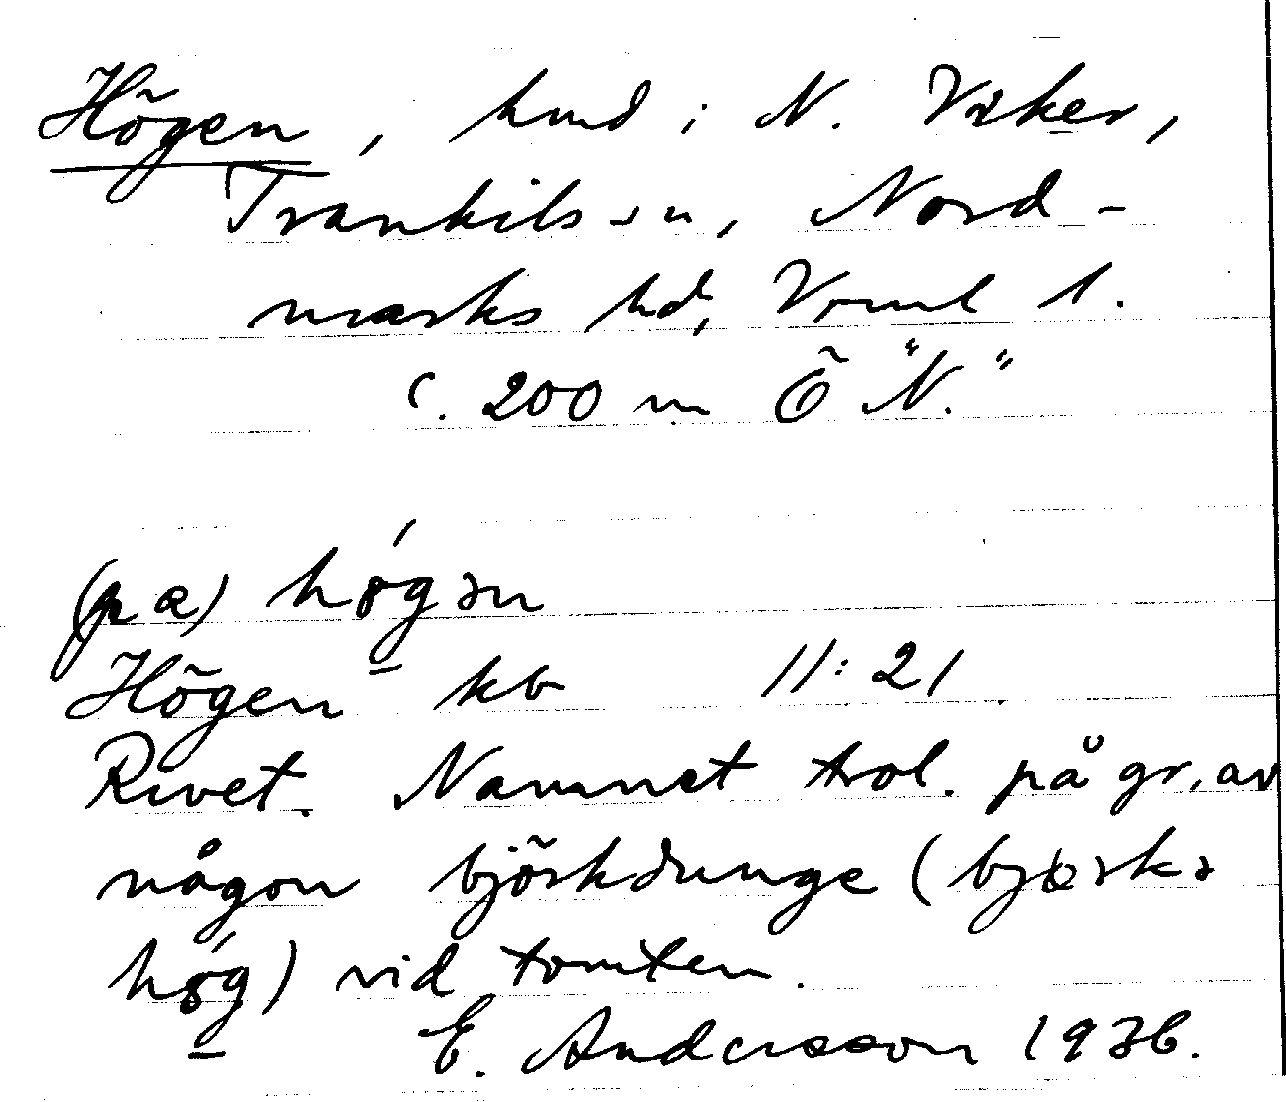 Högen, hmd i N. Viker,
Trankils sn, Nord-
marks hd, Vrml l.
c. 200 m Ö "N."
(pæ) hǿgən
Högen kb 11:21
Rivet. Namnet trol. på gr. av
någon björkdunge (bjærkə
hǿg) vid tomten.
E. Andersson 1936.